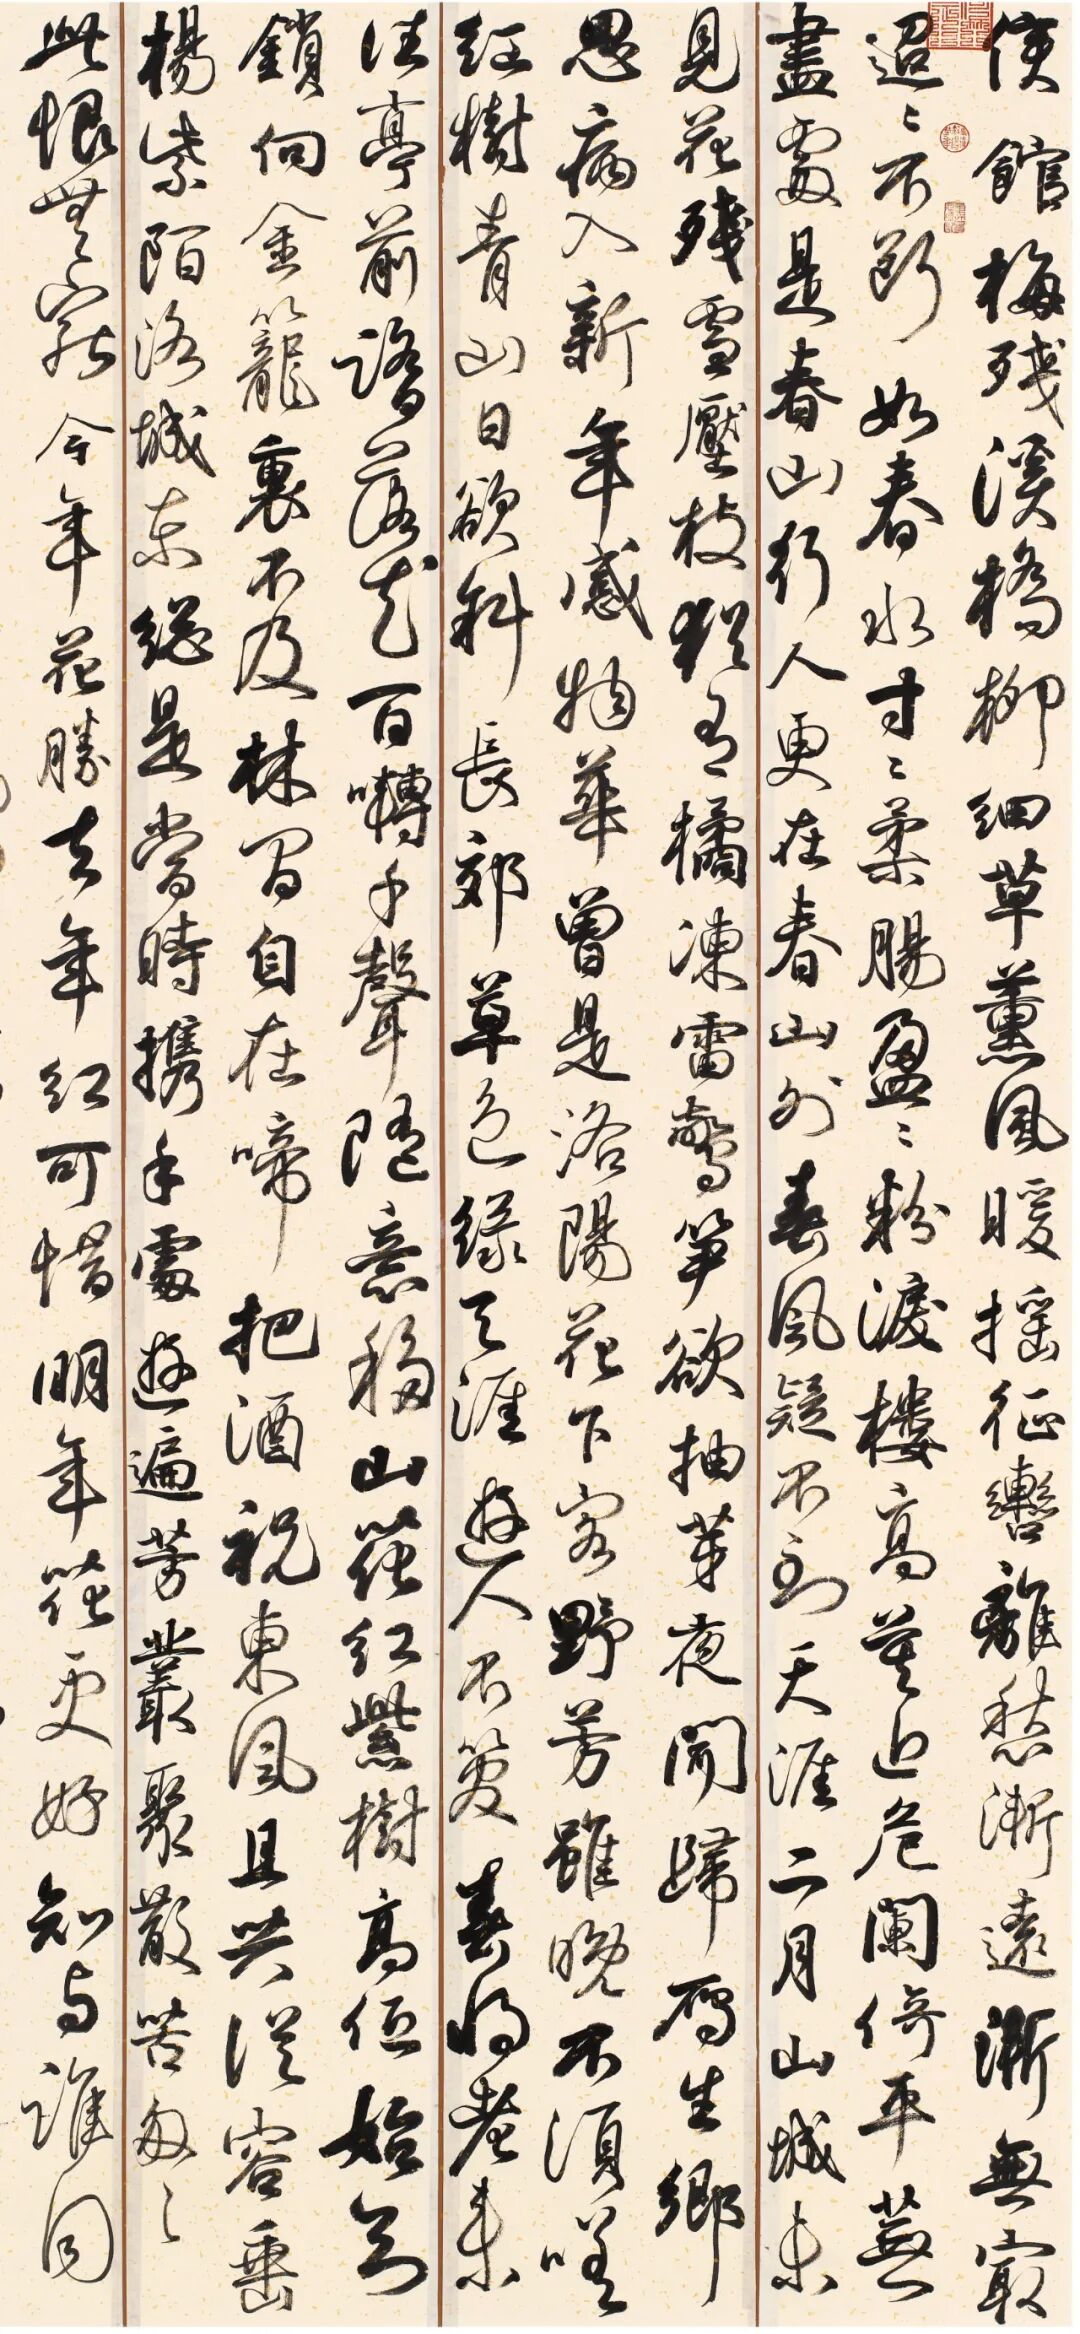 候館梅殘溪橋柳細草薰風暖摇征轡離愁漸遠漸無窮
迢〻不斷如春水寸〻柔腸盈〻粉淚樓高莫近危闌倚平蕪
盡處是春山行人更在春山外春風疑不到天涯二月山城未
見花殘雪壓枝猶有橘凍雷驚筍欲抽芽夜聞歸雁生鄉
思病入新年感物華曾是洛陽花下客野芳雖晚不須嗟
紅樹青山日欲斜長郊草色緑无涯遊人不管春將老來
往亭前踏落花百囀千聲隨意移山花紅紫樹高低始知
鎖向金籠裏不及林間自在啼把酒祝東風且共從容垂
楊紫陌洛城東總是當時携手處遊遍芳叢聚散苦匆〻
此恨無窮今年花勝去年紅可惜明年花更好知與誰同